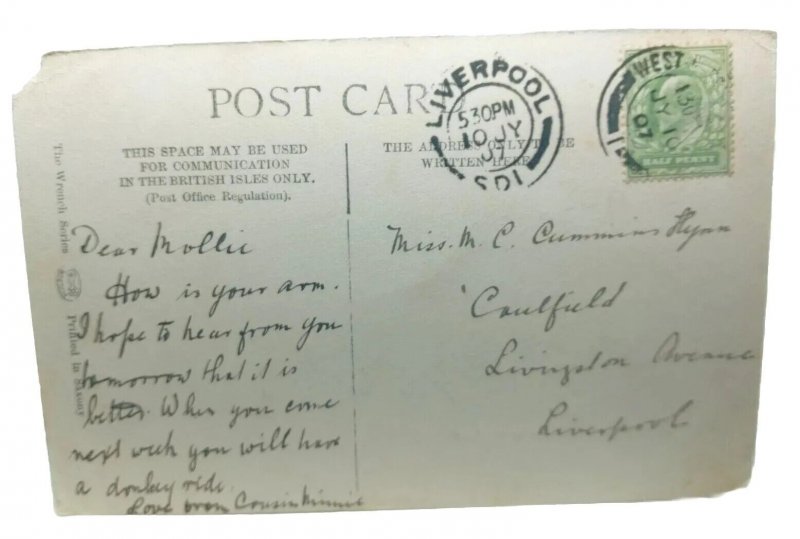 POST CARD
THIS SPACE MAY BE USED
FOR COMMUNICATION
IN THE BRITISH ISLES ONLY.
(Post Office Regulation).
THE ADDRESS ONLY TO BE
WRITTEN HERE
LIVERPOOL
530PM
10 JY
07
SD1
WEST
130
JY 10
07
HALF PENNY
The Wrench Series
Printed in Saxony
Dear Mollie
How is your arm.
I hope to hear from you
tomorrow that it is
better. When you come
next week you will have
a donkey ride.
Love from Cousin Minnie
Miss. M. C. Cummins Flynn
'Caulfield
Livingston Avenue
Liverpool